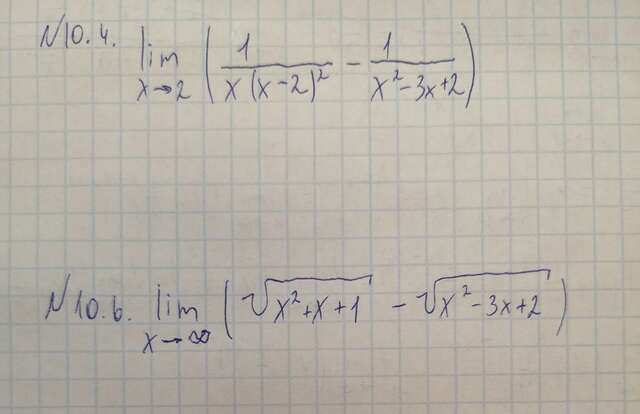 №10.4. lim x→2 ( 1 / x(x-2)² - 1 / x²-3x+2 )
№10.6. lim x→∞ ( √x²+x+1 - √x²-3x+2 )